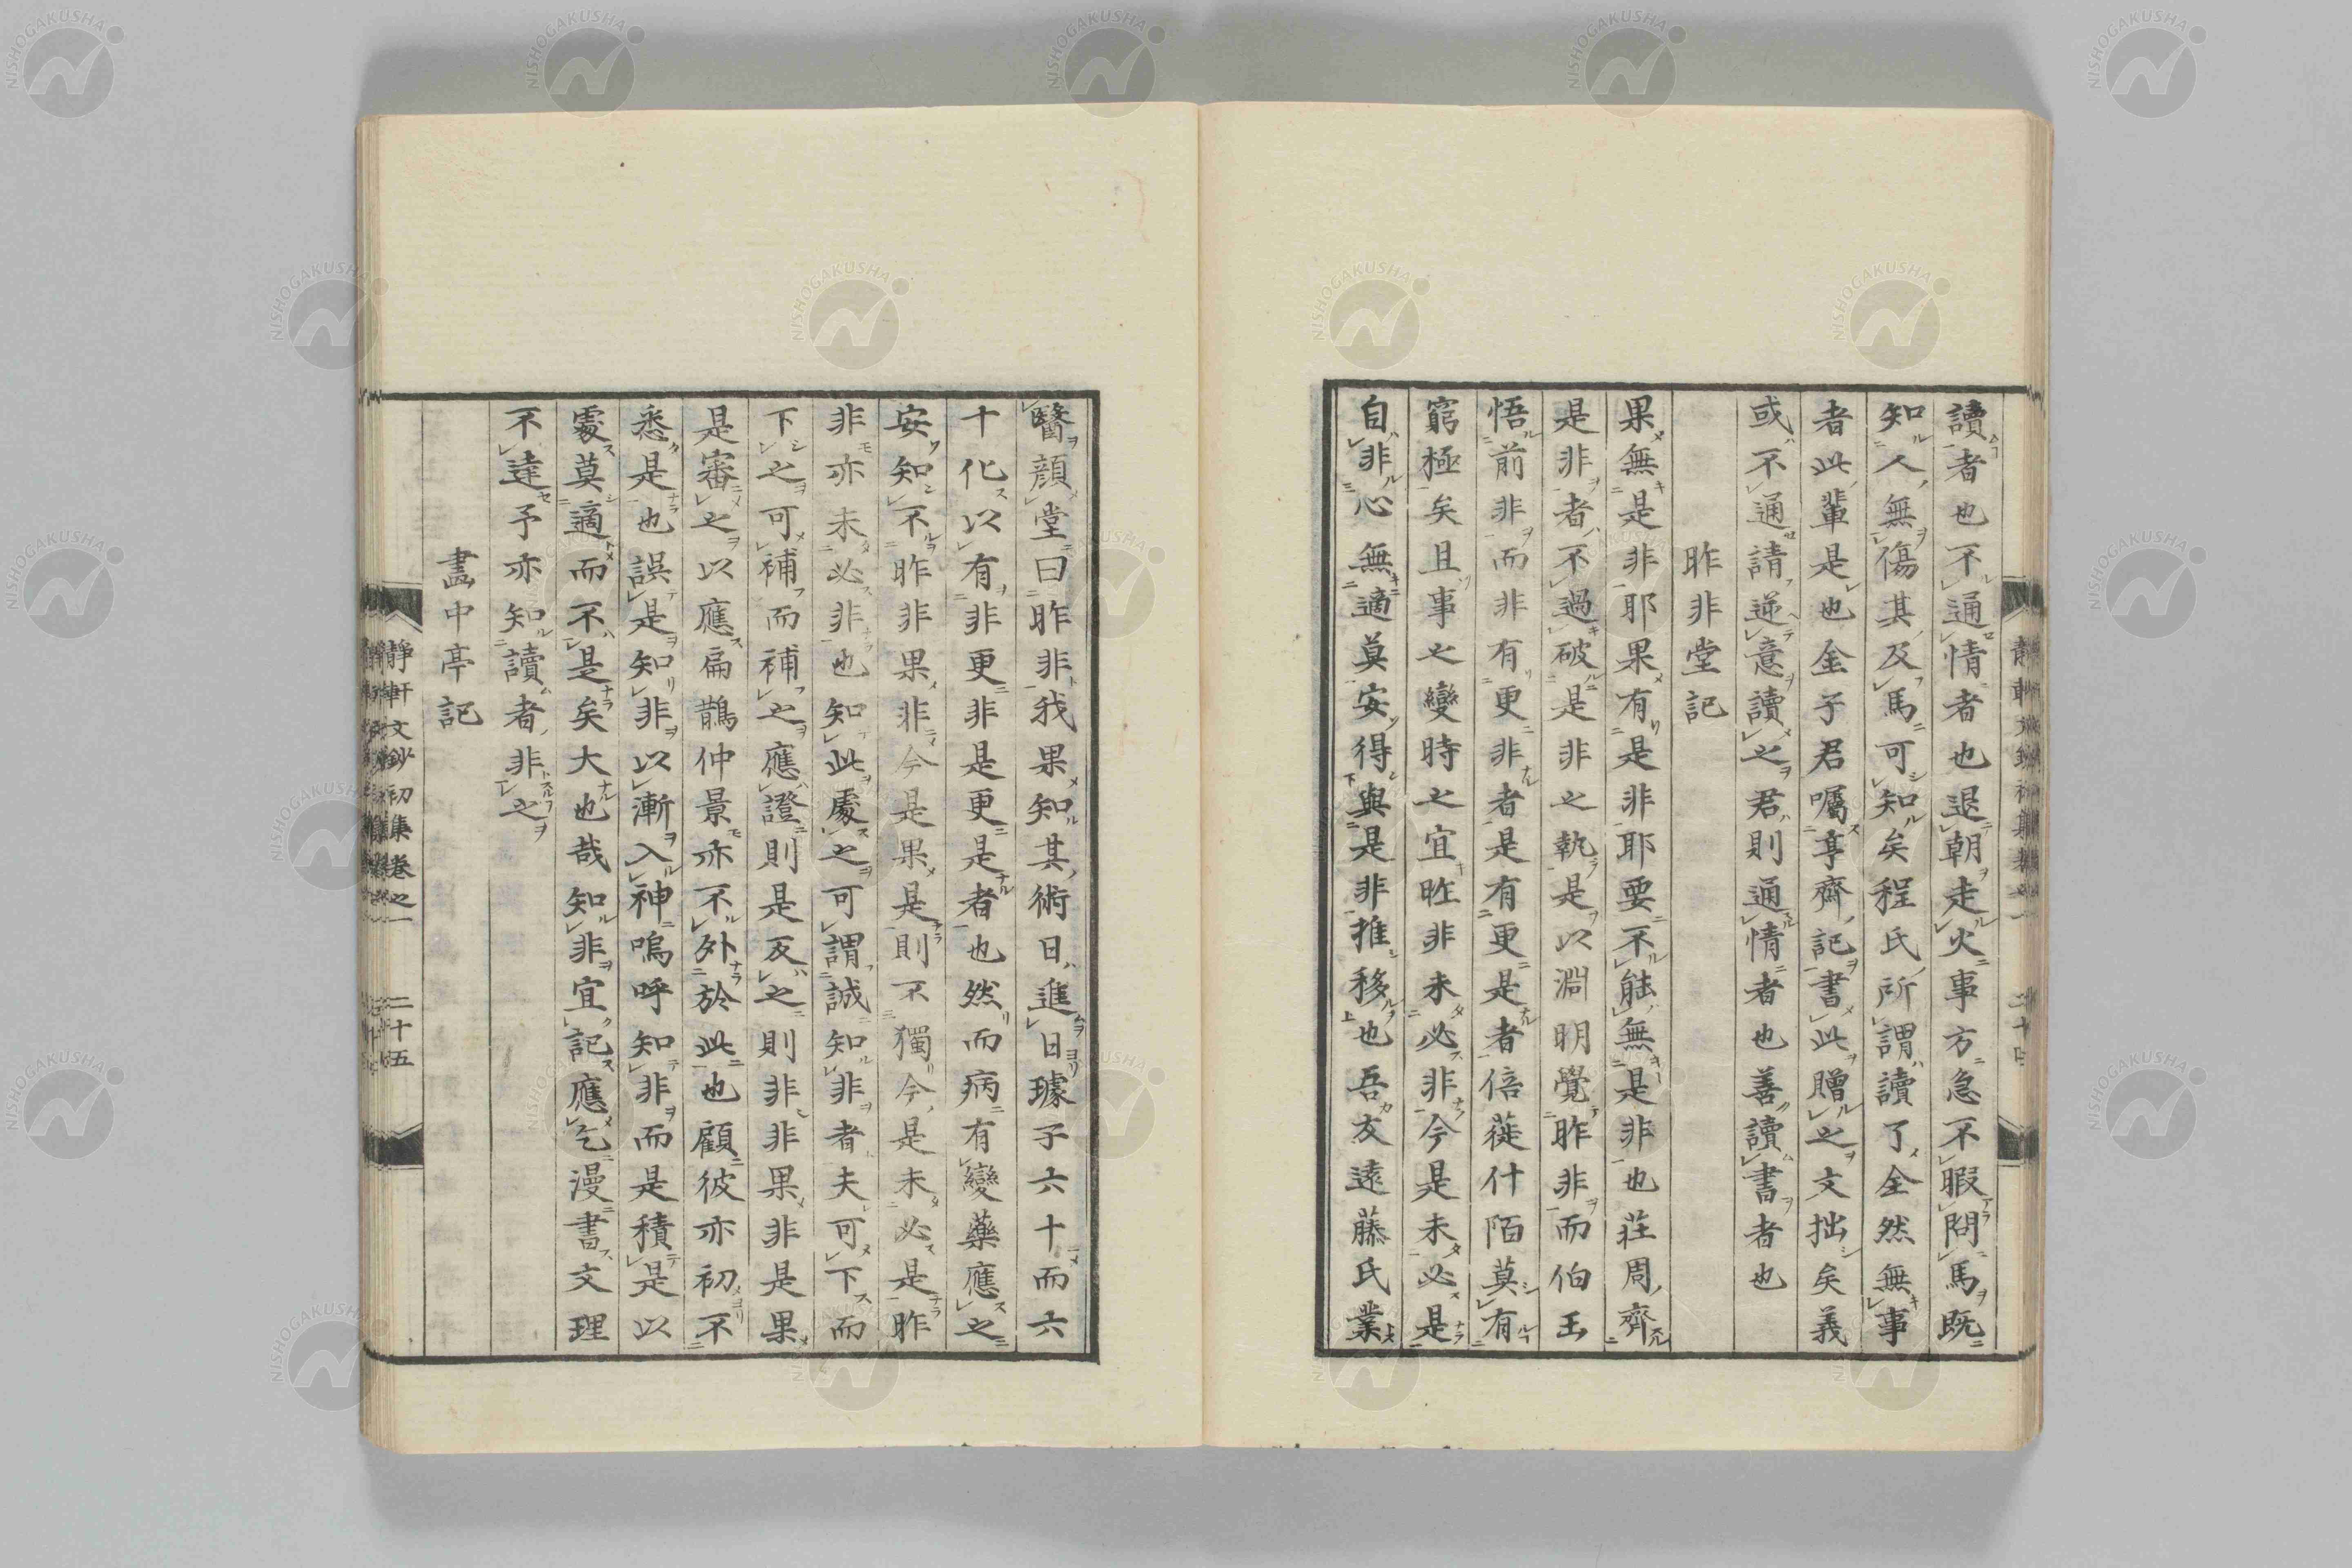 讀者也不通情者也退朝走火事方急不暇問馬既
知人無傷其及馬可知矣程氏所謂讀了全然無事
者此輩是也金子君囑享齊記書此贈之文拙矣義
或不通請逆意讀之君則通情者也善讀書者也
昨非堂記
果無是非耶果有是非耶要不能無是非也莊周齊
是非者不過破是非之執是以淵明覺昨非而伯玉
悟前非而非有更非者是有更是者倍蓰什陌莫有
窮極矣且事之變時之宜昨非未必非今是未必是
自非心無適莫安得與是非推移也吾友遠藤氏業
醫顏堂曰昨非我果知其術日進日璩子六十而六
十化以有非更非是更是者也然而病有變藥應之
安知不昨非果非今是果是則不獨今是未必是昨
非亦未必非也知此處之可謂誠知非者夫可下而
下之可補而補之應證則是反之則非非果非是果
是審之以應扁鵲仲景亦不外於此也顧彼亦初不
悉是也誤是知非以漸入神嗚呼知非而是積是以
處莫適而不是矣大也哉知非宜記應乞漫書文理
不達予亦知讀者非之
畵中亭記
靜軒文鈔初集卷之一 二十五
NISHOGAKUSHA